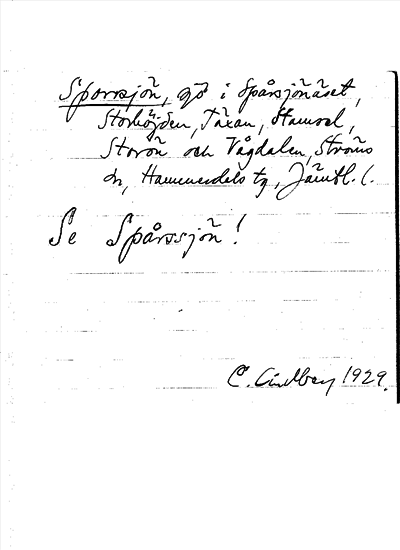 Sporrsjön, sjö i Spårsjönäset,
Storhöjden, Täxan, Hamvel,
Storön och Vågdalen, Ströms
sn, Hammerdals tg, Jämtl. l.
Se Spårssjön!
C. Lindberg 1929.